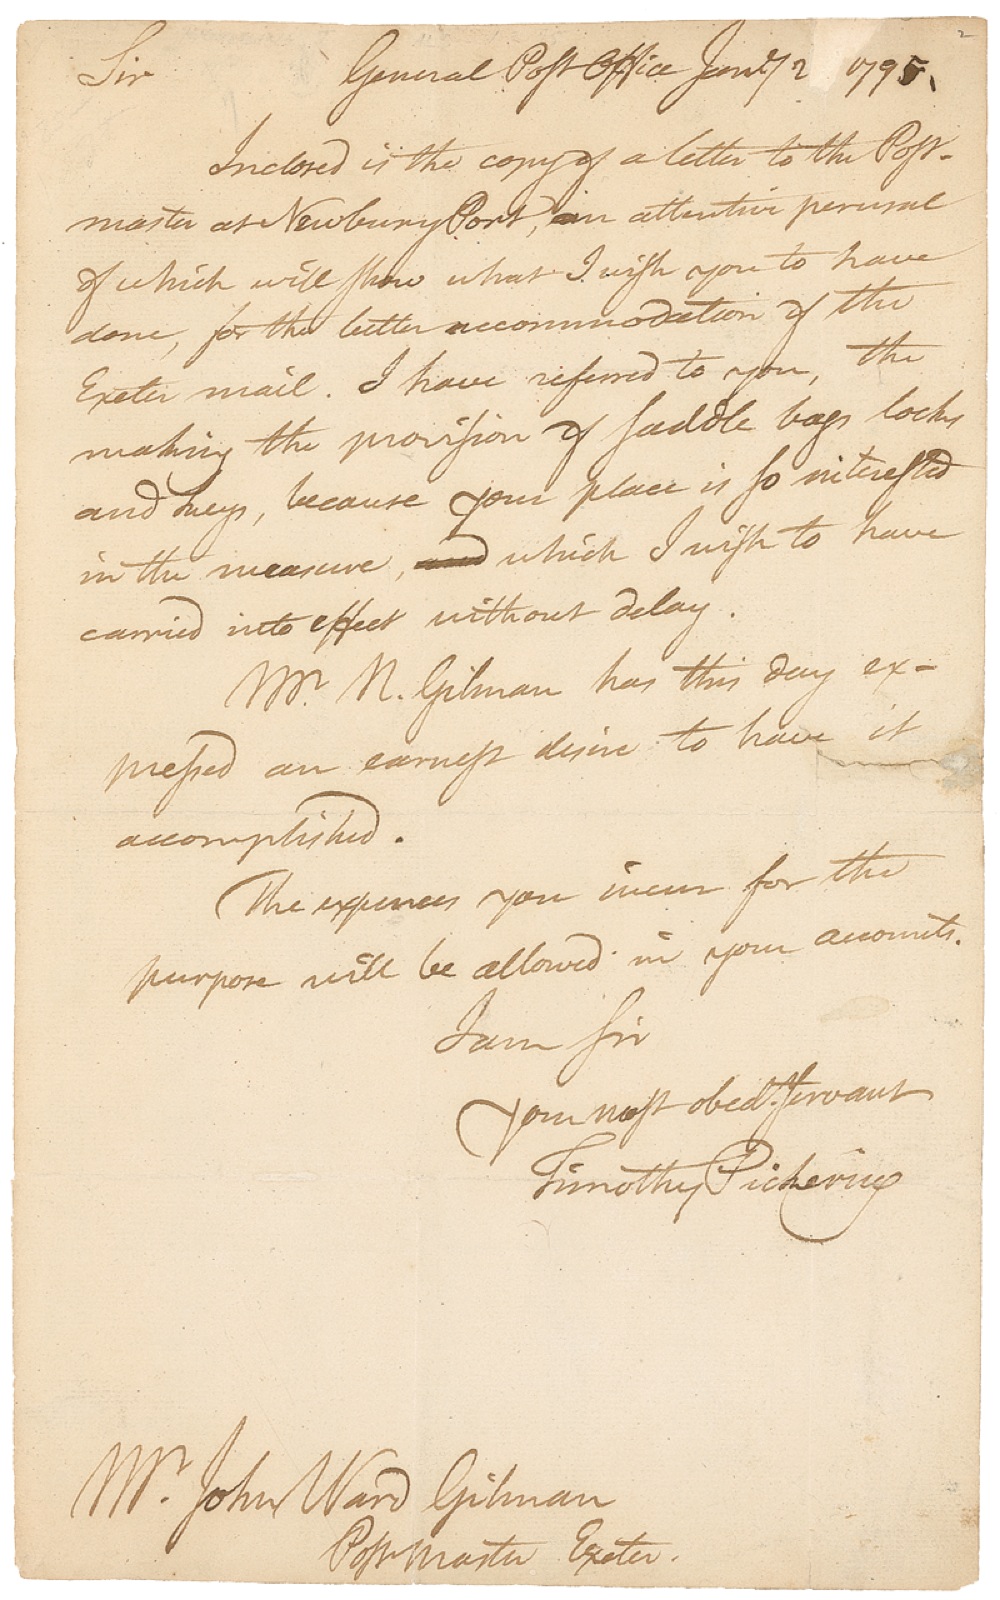 Sir General Post Office Jany 2 1795.
Inclosed is the copy of a letter to the Post-
master at Newbury Port, an attentive perusal
of which will shew what I wish you to have
done, for the better accommodation of the
Exeter mail. I have referred to you, the
making the provision of saddle bags locks
and keys, because your place is so interested
in the measure, and which I wish to have
carried into effect without delay.
Mr. N. Gilman has this day ex-
pressed an earnest desire to have it
accomplished.
The expences you incur for the
purpose will be allowed in your accounts.
I am Sir
your most obedt. servant
Timothy Pickering
Mr. John Ward Gilman
Post Master Exeter.
2